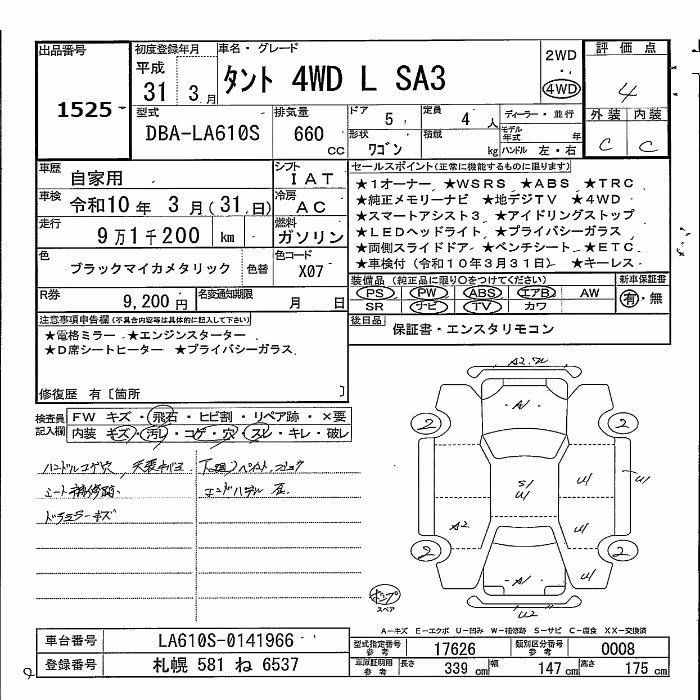 出品番号
1525
初度登録年月
平成
31 3 月
車名・グレード
タント 4WD L SA3
2WD
4WD
評価点
4
外装 内装
C C
型式
DBA-LA610S
排気量
660 cc
ドア
5
定員
4 人
形状
ワゴン
積載
kg
ディーラー・並行
モデル年式 年
ハンドル 左・右
車歴
自家用
シフト
IAT
車検
令和10 年 3 月(31 日)
冷房
AC
走行
9万1千200 km
燃料
ガソリン
色
ブラックマイカメタリック
色替
色コード
X07
R券
9,200円
名変通知期限
月 日
セールスポイント(正常に機能するものに限ります)
★1オーナー ★WSRS ★ABS ★TRC
★純正メモリーナビ ★地デジTV ★4WD
★スマートアシスト3 ★アイドリングストップ
★LEDヘッドライト ★プライバシーガラス
★両側スライドドア ★ベンチシート ★ETC
★車検付(令和10年3月31日) ★キーレス
装備品(純正品に限り○をつけてください)
PS PW ABS エアB AW
SR ナビ TV カワ
新車保証書
有・無
後日品
保証書・エンスタリモコン
注意事項申告欄(不具合内容等は具体的に記入して下さい)
★電格ミラー ★エンジンスターター
★D席シートヒーター ★プライバシーガラス
修復歴 有〔箇所 〕
検査員記入欄
FW キズ・飛石・ヒビ割・リペア跡・×要
内装 キズ・汚レ・コゲ・穴・スレ・キレ・破レ
ハンドルコゲ穴
シート補修跡
ドアミラーキズ
A2
A1
2 2
S/U1
U1
U1
U1
A2
2 2
U1
A1
U1
U2
スペア
A-キズ E-エクボ U-凹み W-補修跡 S-サビ C-腐食 XX-交換済
車台番号
LA610S-0141966
登録番号
札幌 581 ね 6537
型式指定番号 参考
17626
類別区分番号 参考
0008
車庫証明用 参考
長さ 339 cm 幅 147 cm 高さ 175 cm